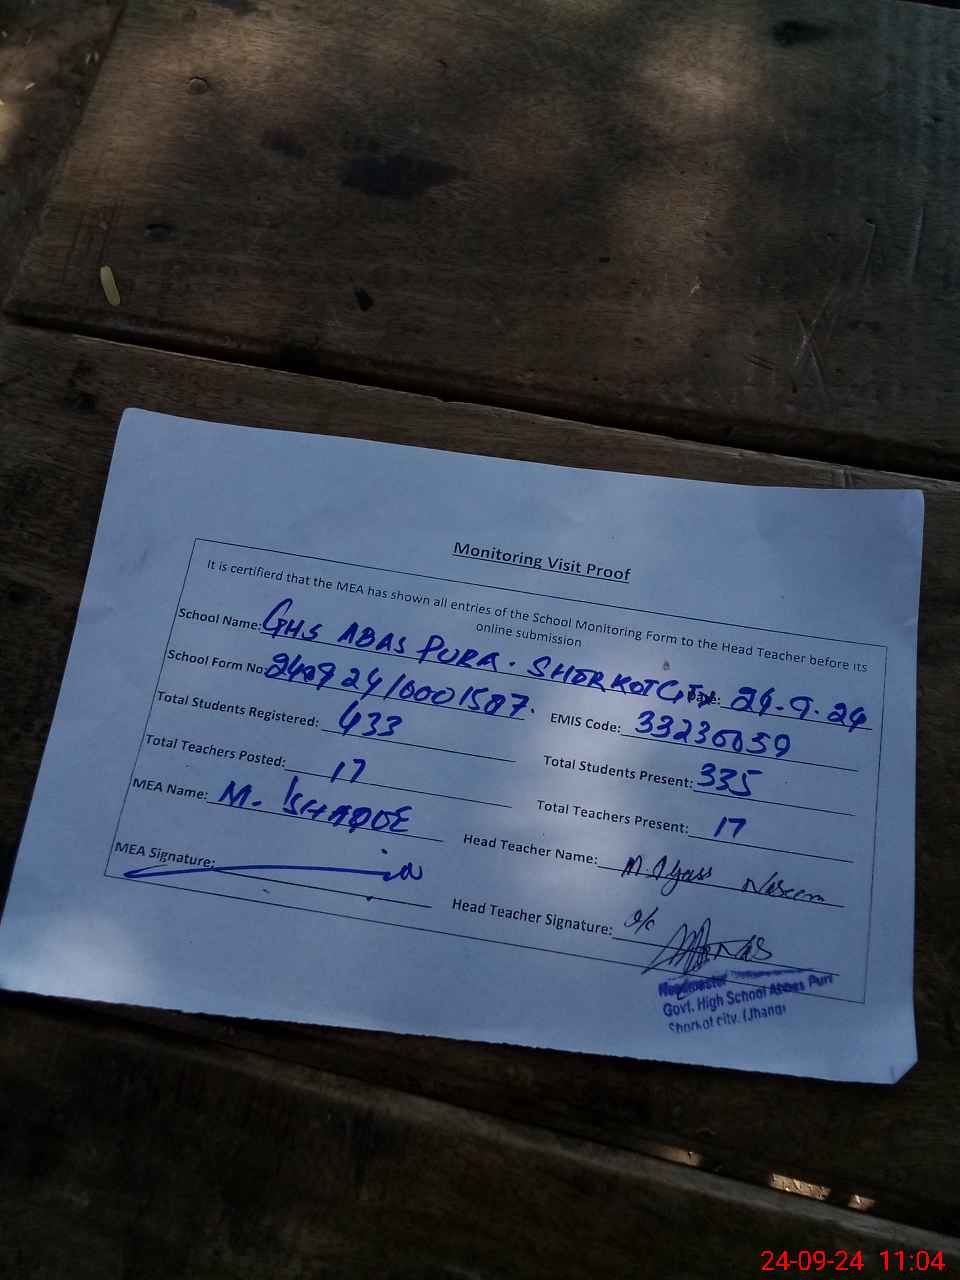 Monitoring Visit Proof
It is certifierd that the MEA has shown all entries of the School Monitoring Form to the Head Teacher before its
online submission
School Name: GHS ABAS PURA. SHORKOT CITY Date: 24.9.24
School Form No: 24092410001587. EMIS Code: 33230059
Total Students Registered: 433 Total Students Present: 335
Total Teachers Posted: 17 Total Teachers Present: 17
MEA Name: M. ISHAQUE Head Teacher Name: M. Ilyass Naseem
MEA Signature: Head Teacher Signature: o/c
Headmaster
Govt. High School Abbas Puri
Shorkot City. (Jhang)
24-09-24 11:04